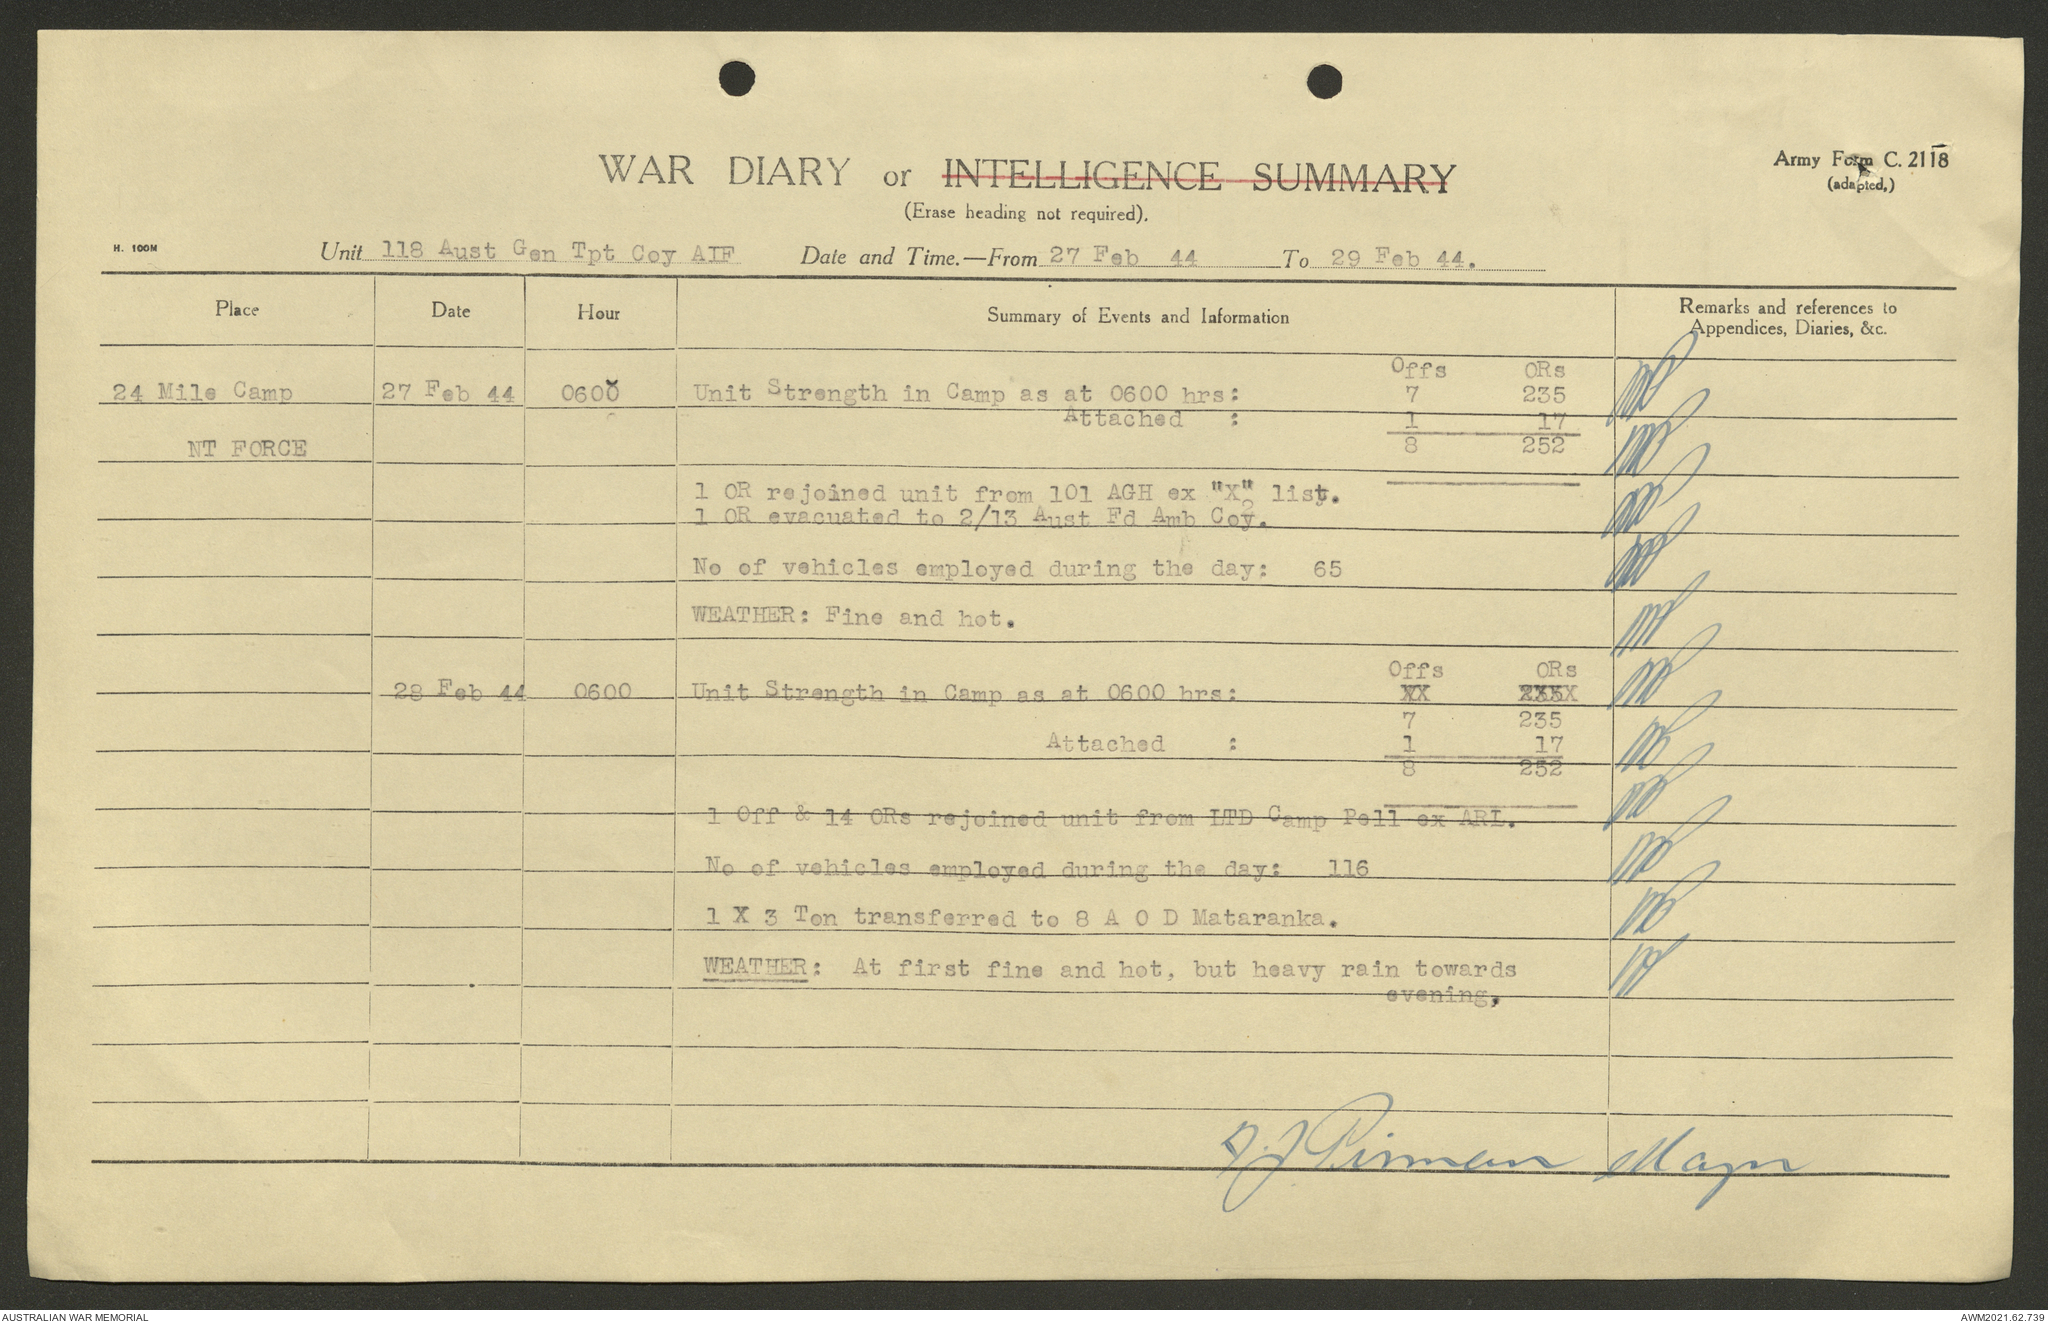 WAR DIARY or INTELLIGENCE SUMMARY
Army Form C. 2118
(adapted.)
(Erase heading not required).
H. 100M
Unit 118 Aust Gen Tpt Coy AIF Date and Time.—From 27 Feb 44 To 29 Feb 44.
Place Date Hour Summary of Events and Information Remarks and references to
Appendices, Diaries, &c.
Offs ORs
24 Mile Camp 27 Feb 44 0600 Unit Strength in Camp as at 0600 hrs: 7 235
Attached : 1 17
NT FORCE 8 252
1 OR rejoined unit from 101 AGH ex "X" list.
1 OR evacuated to 2/13 Aust Fd Amb Coy.
No of vehicles employed during the day: 65
WEATHER: Fine and hot.
Offs ORs
28 Feb 44 0600 Unit Strength in Camp as at 0600 hrs:
7 235
Attached : 1 17
8 252
1 Off & 14 ORs rejoined unit from LTD Camp Pell ex ARL.
No of vehicles employed during the day: 116
1 X 3 Ton transferred to 8 A O D Mataranka.
WEATHER: At first fine and hot, but heavy rain towards
evening.
Major
AUSTRALIAN WAR MEMORIAL
AWM2021.62.739